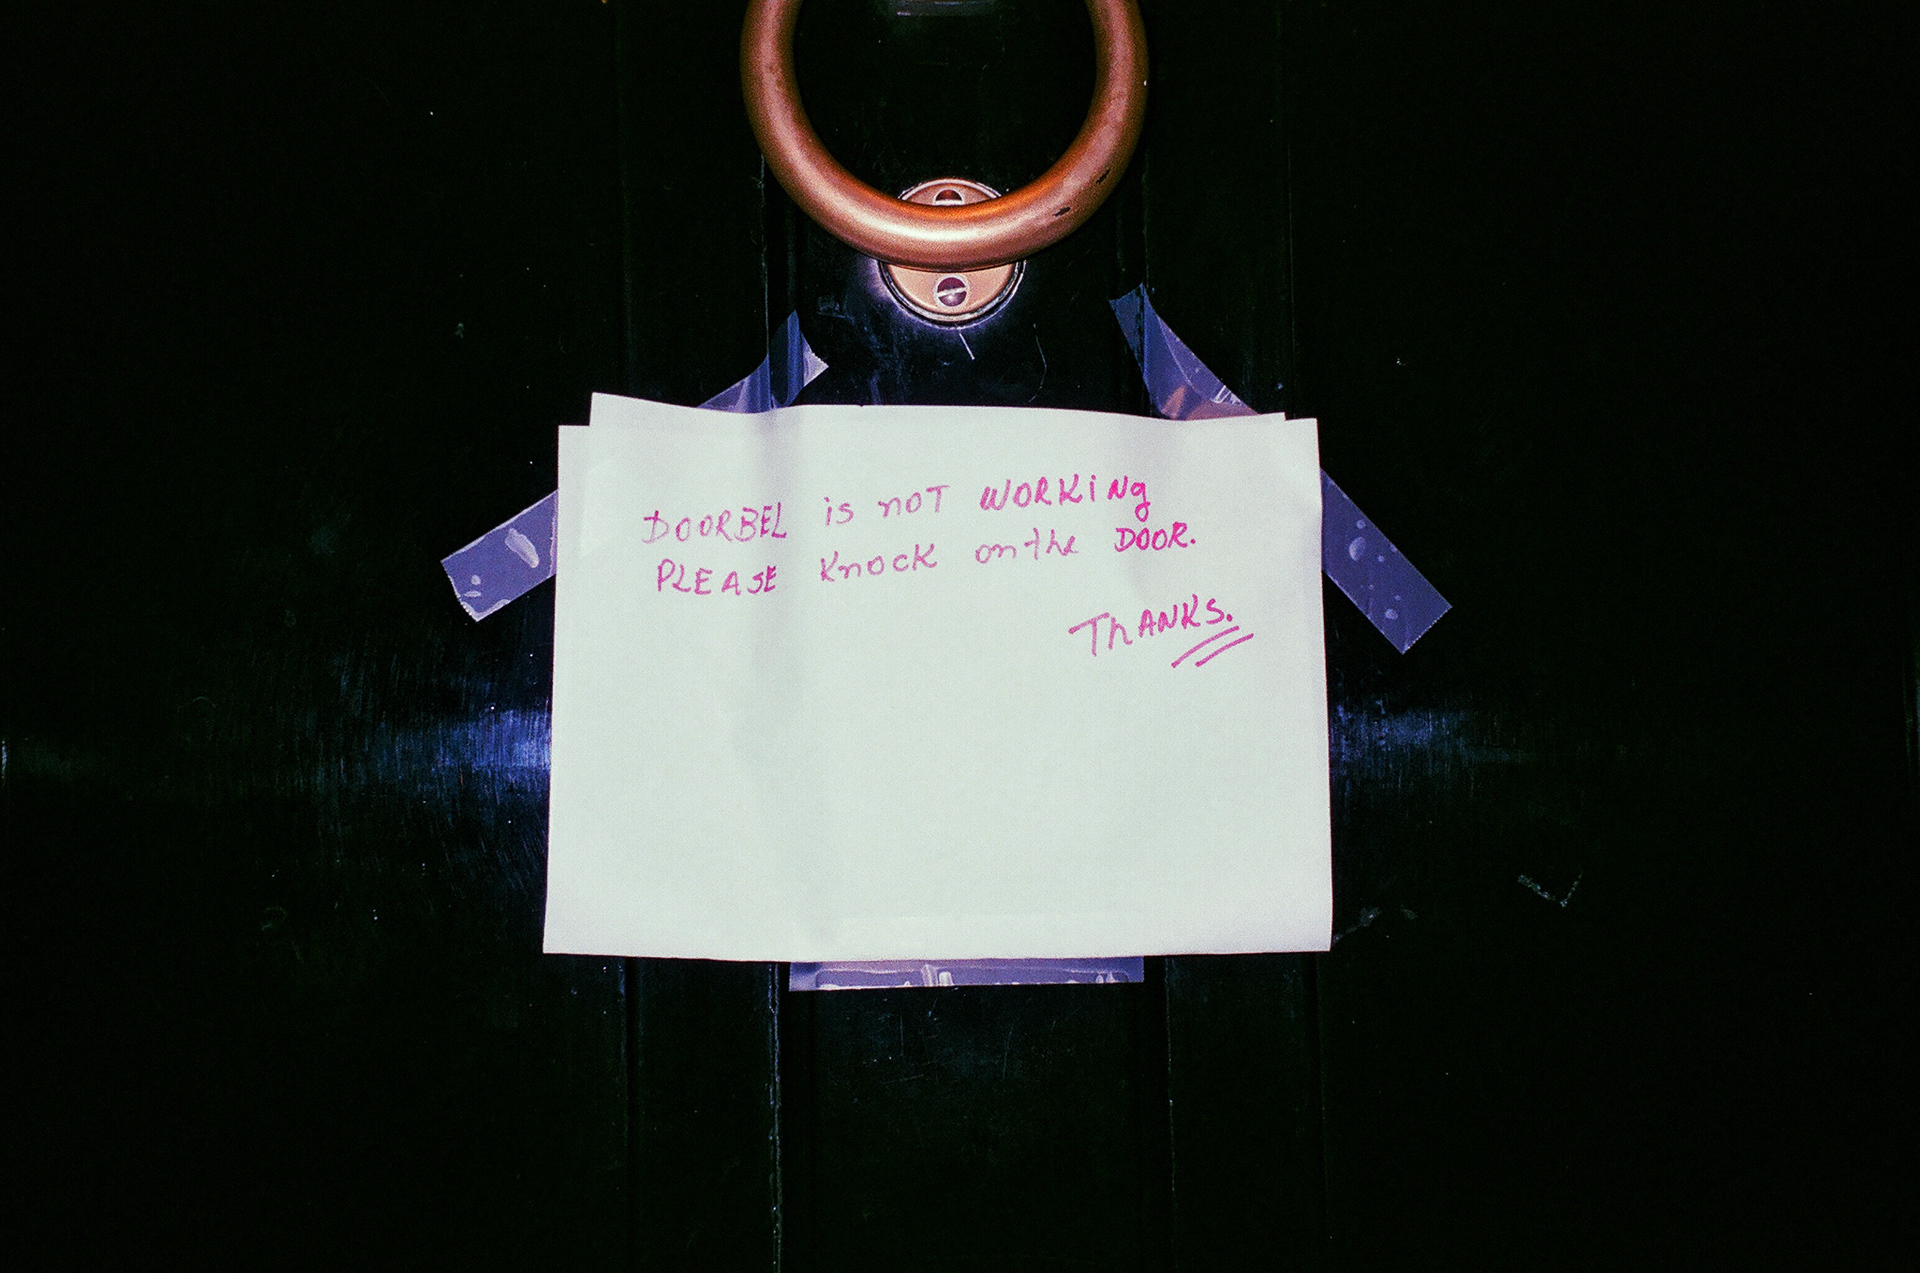 DOORBEL is noT WORKiNg
PLEASE KnocK on the DOOR.
ThANKS.